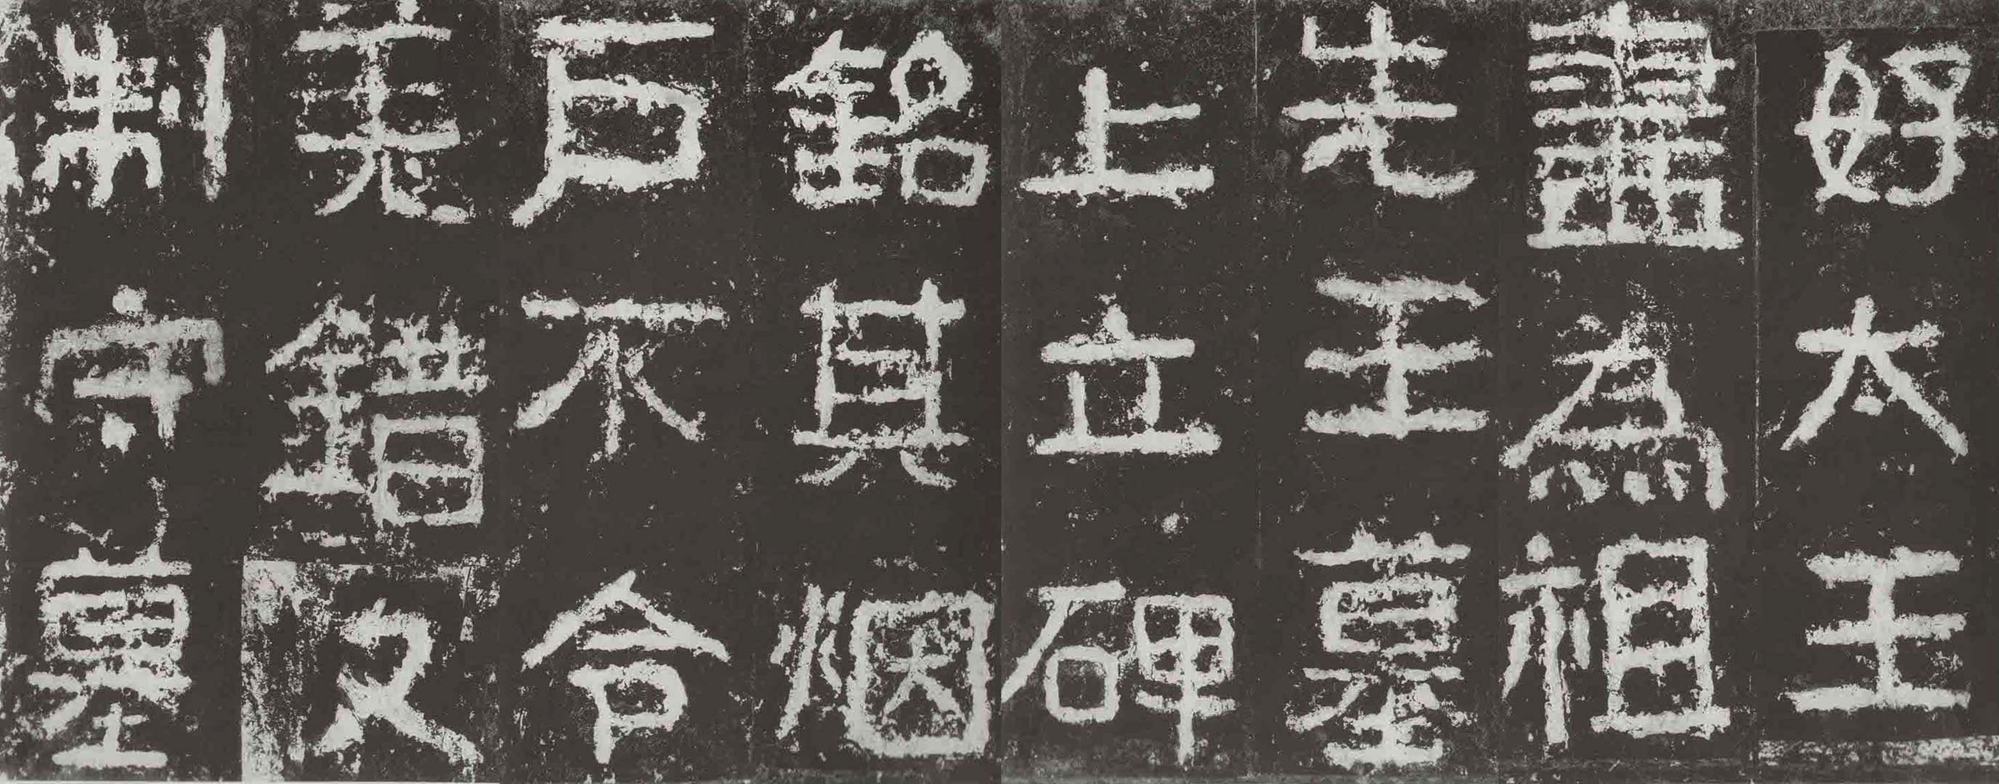 好太王
盡為祖
先王墓
上立碑
銘其烟
戶不令
差錯又
制守墓